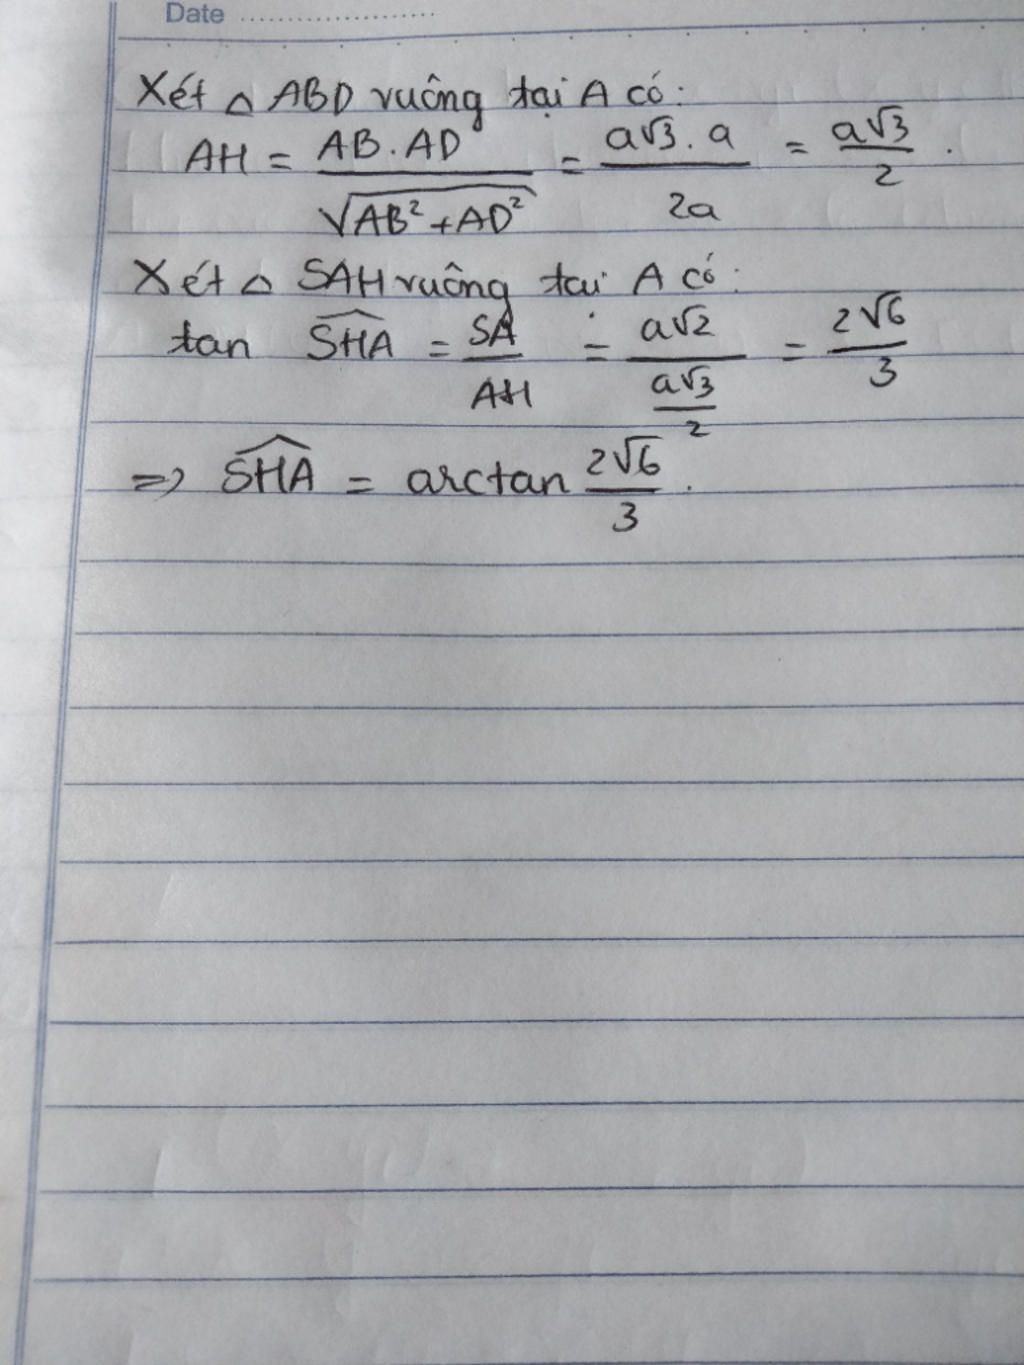 Date ........................
Xét △ ABD vuông tại A có:
AH = AB.AD / √(AB² + AD²) = a√3 . a / 2a = a√3 / 2 .
Xét △ SAH vuông tại A có:
tan SHA = SA / AH = a√2 / (a√3 / 2) = 2√6 / 3
=> SHA = arctan 2√6 / 3 .